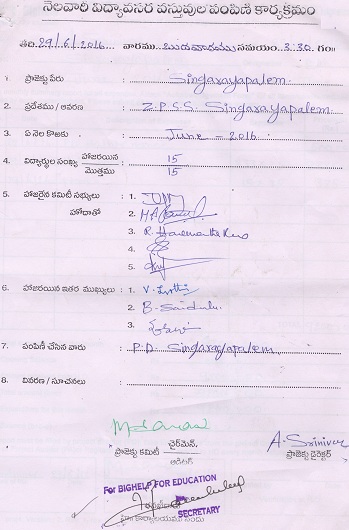 నెలవారీ విద్యావసర వస్తువుల పంపిణీ కార్యక్రమం
తేది. 29/6/2016 వారము బుధవారము సమయం. 3.30 గం॥
1. ప్రాజెక్టు పేరు : Singarayapalem.
2. ప్రదేశము / ఆవరణ : Z.P.S.S. Singarayapalem.
3. ఏ నెల కొఱకు : June - 2016
4. విద్యార్థుల సంఖ్య హాజరయిన : 15
మొత్తము 15
5. హాజరైన కమిటీ సభ్యులు : 1.
హోదాతో 2.
3. R. Hanumantha Rao
4.
5.
6. హాజరయిన ఇతర ముఖ్యులు : 1. V. Jyothi
2. B. Saidulu
3.
7. పంపిణీ చేసిన వారు : P.D. Singarayapalem.
8. వివరణ / సూచనలు :
A. Srinivas
ప్రాజెక్టు కమిటీ చైర్‌మెన్, ప్రాజెక్టు డైరెక్టర్
ఆడిటర్
For BIGHELP FOR EDUCATION
SECRETARY